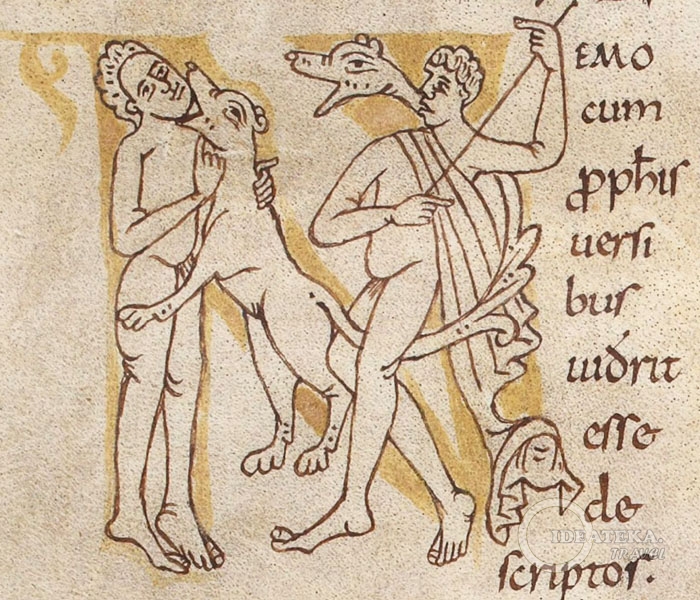 NEMO
cum
ꝓph̄is
uersi
bus
uid̓rit
esse
de
scriptos.
IDEATEKA.
TRAVEL